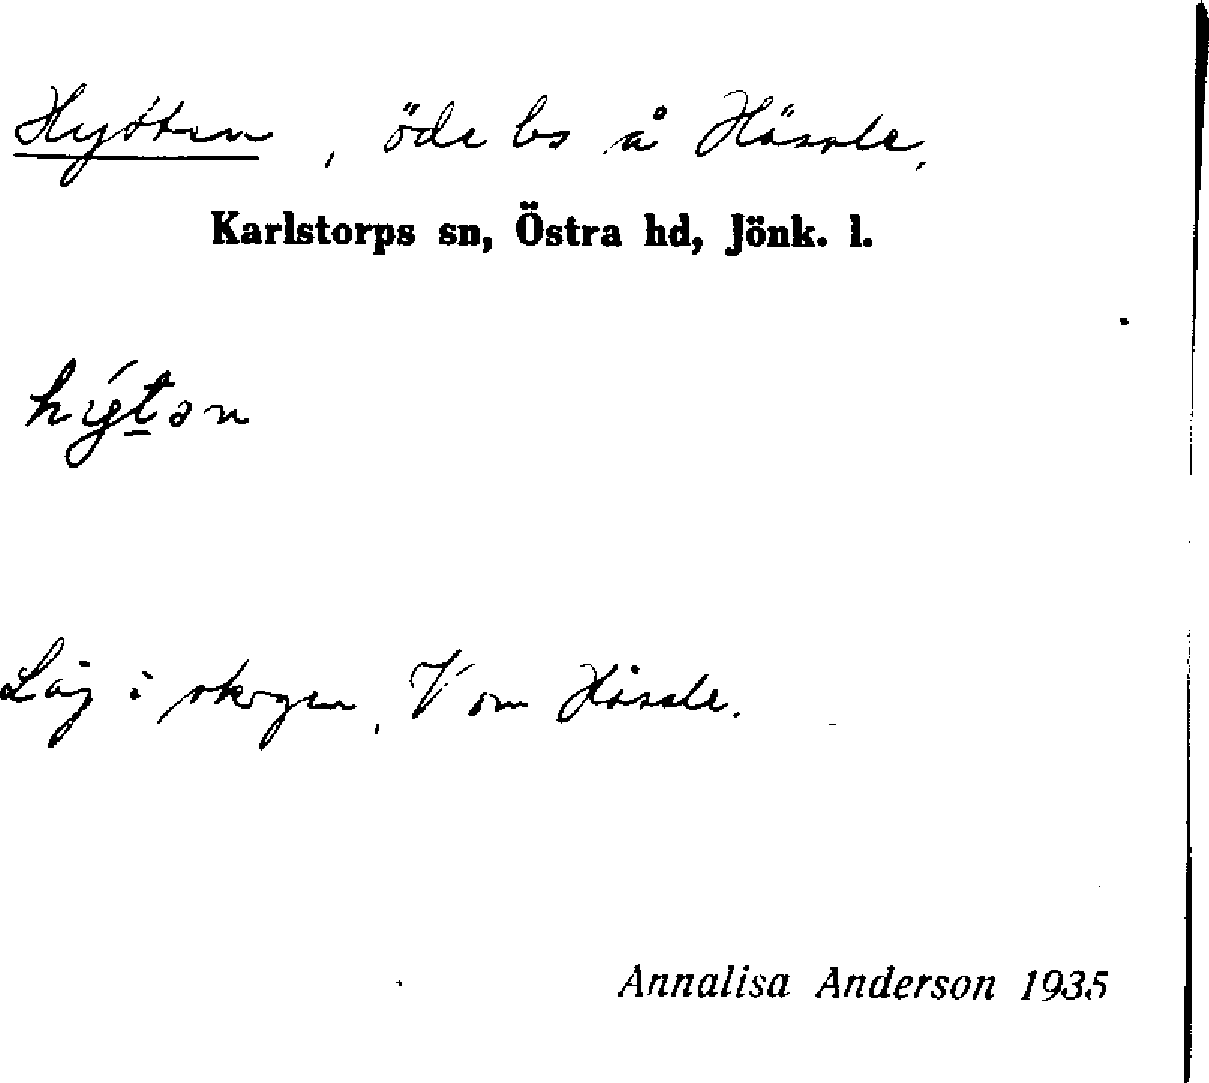 Hytten, öde bs å Hässle.
Karlstorps sn, Östra hd, Jönk. l.
hýt̲ən
Låg i skogen, V om Hässle.
Annalisa Anderson 1935